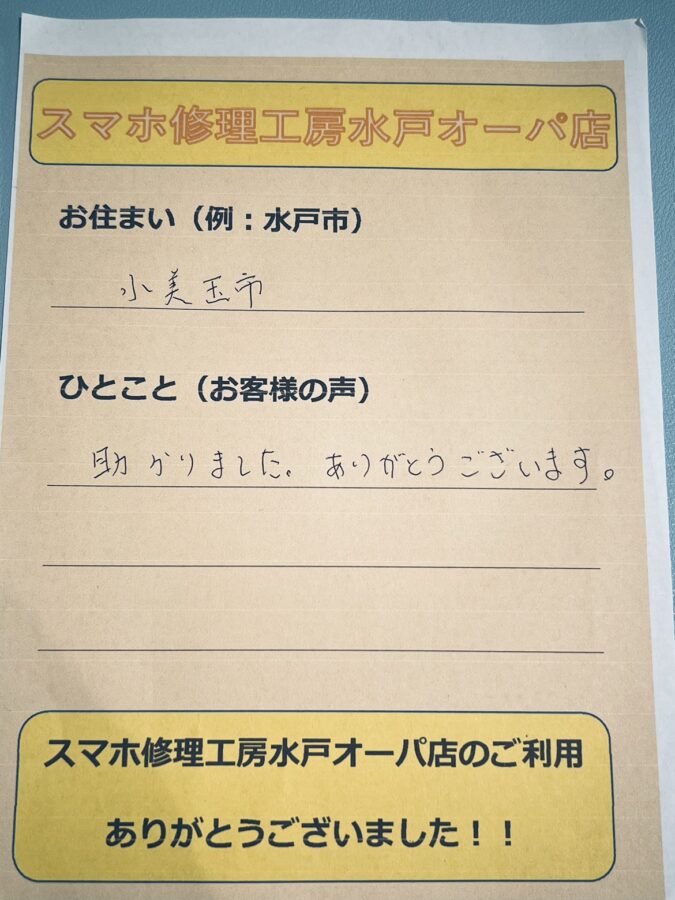 スマホ修理工房水戸オーパ店
お住まい（例：水戸市）
小美玉市
ひとこと（お客様の声）
助かりました。ありがとうございます。
スマホ修理工房水戸オーパ店のご利用
ありがとうございました！！